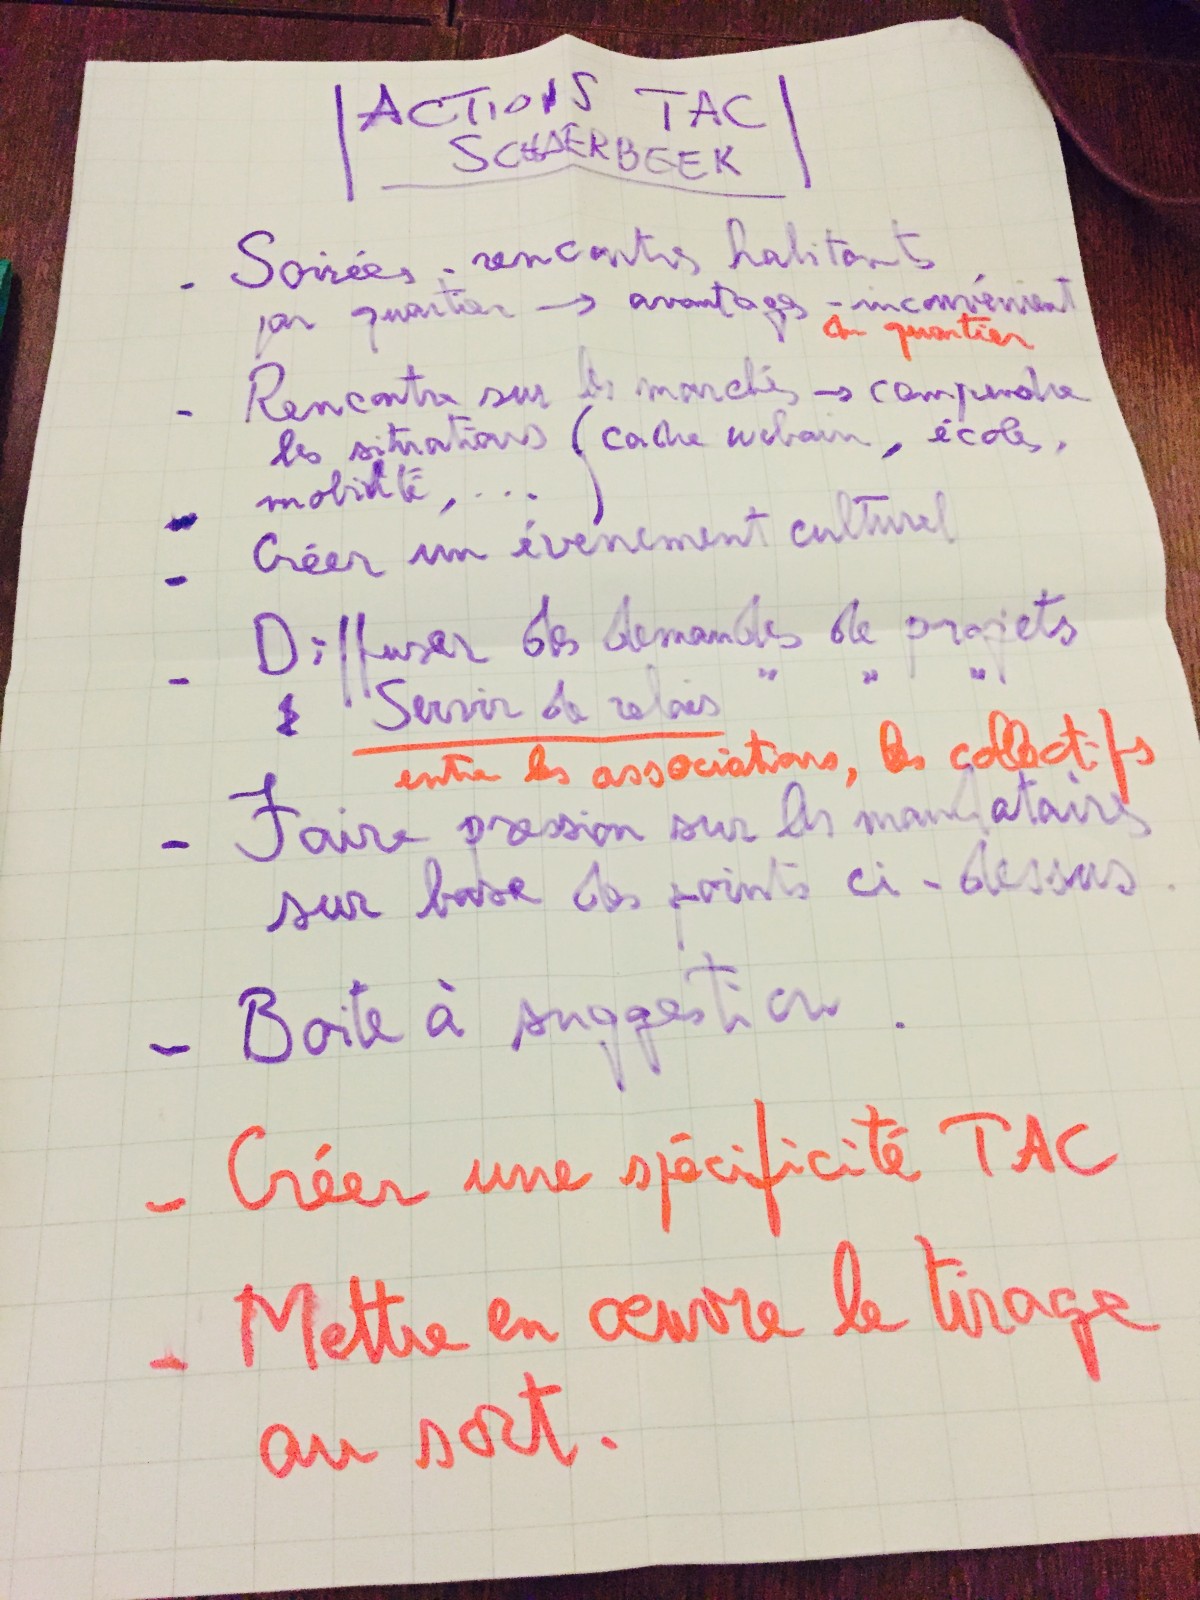 ACTIONS TAC
SCHAERBEEK
- Soirées - rencontres habitants
par quartier → avantages - inconvénient
du quartier
- Rencontre sur les marchés → comprendre
les situations (cadre urbain, écoles,
mobilité, ...)
- Créer un évènement culturel
- Diffuser des demandes de projets
& Servir de relais " " "
entre les associations, les collectifs
- Faire pression sur les mandataires
sur base des points ci-dessus.
- Boite à suggestion.
- Créer une spécificité TAC
- Mettre en œuvre le tirage
au sort.